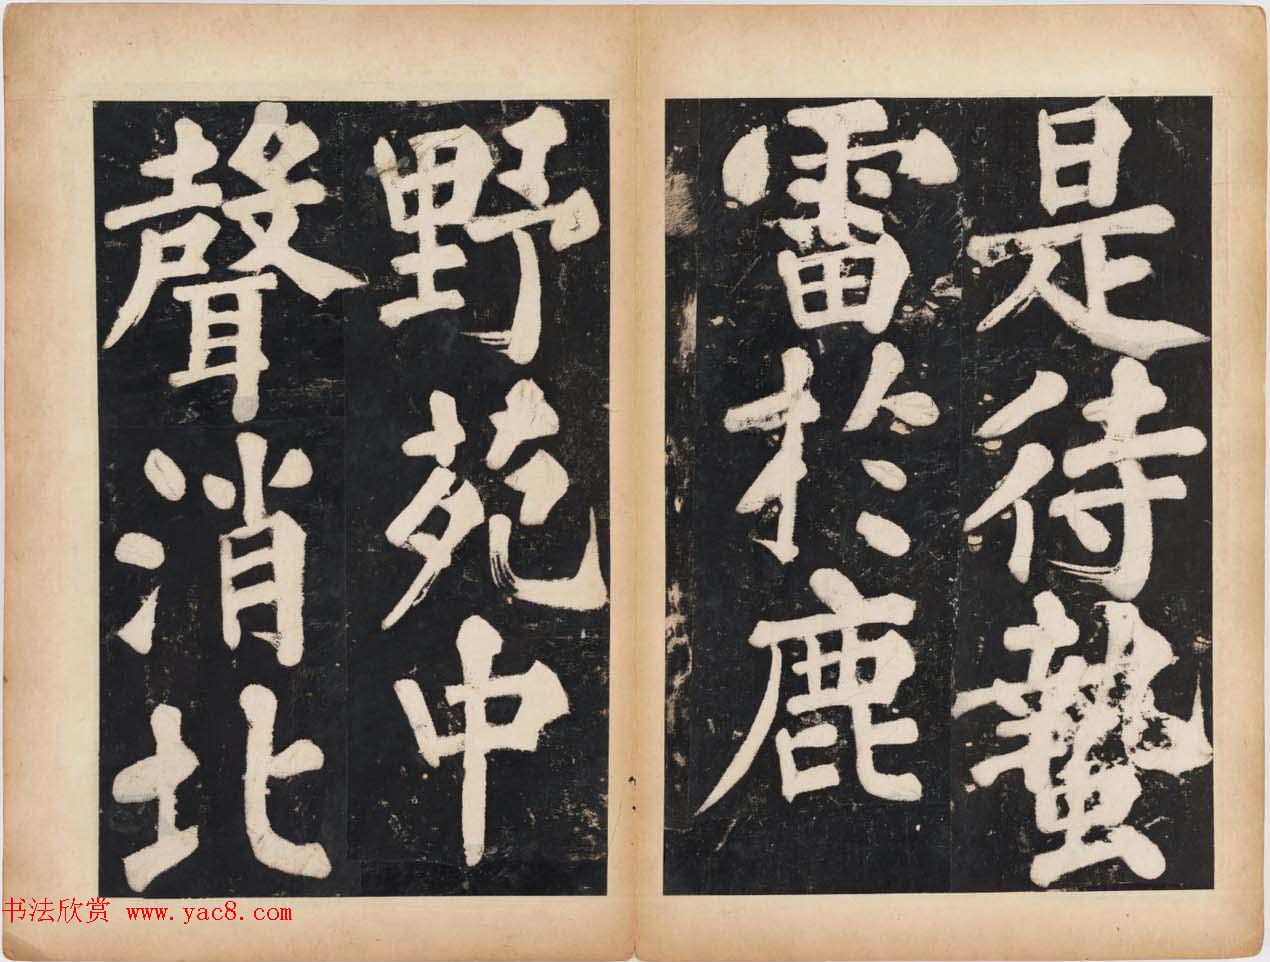 是待蟄
雷於鹿
野苑中
聲消北
书法欣赏 www.yac8.com